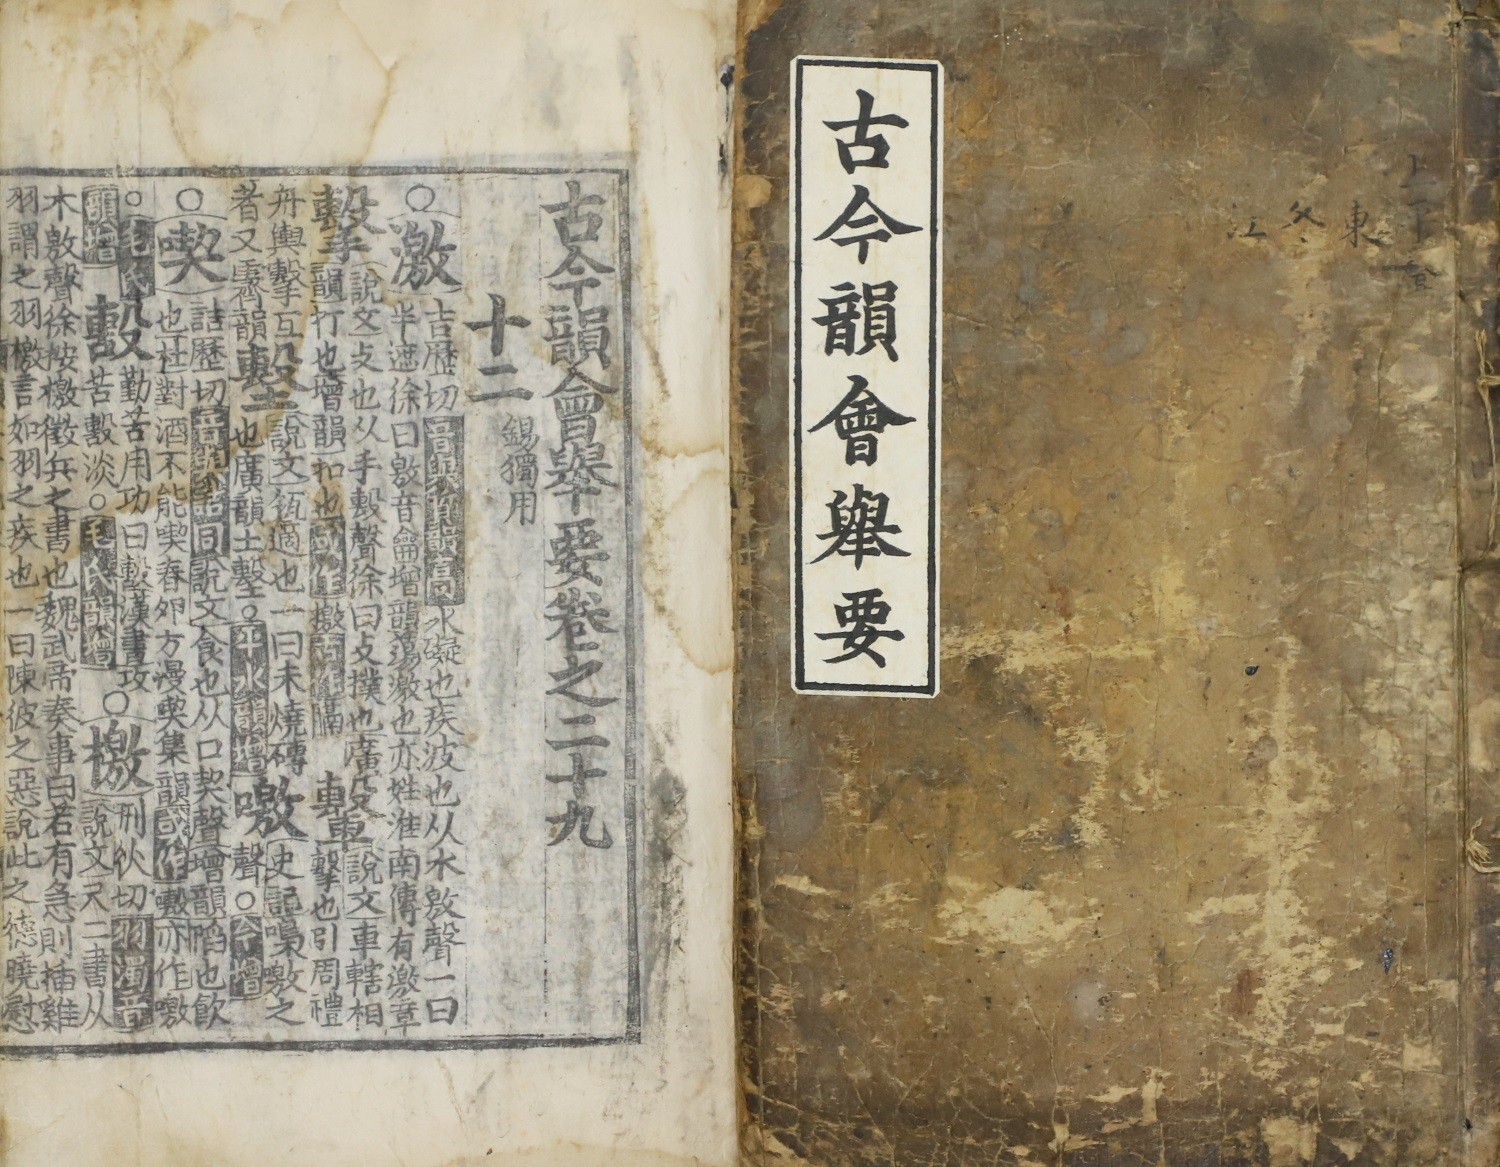 古今韻會舉要
上平聲
東
冬
江
古今韻會舉要卷之二十九
十二 錫獨用
○激 吉歷切音與擊同水礙也疾波也从水敫聲一曰
半遮徐曰敫音龠增韻蕩激也亦姓淮南傳有激章
擊 說文攴也从手毄聲徐曰攴撲也廣
韻打也增韻扣也 轚 說文車轄相
擊也引周禮
舟輿擊互 墼 說文瓴適也一曰未燒磚
者又霽韻 也廣韻土墼○平水韻增 噭 史記噪噭之
聲○今增
○喫 詰歷切 同說文食也从口契聲增韻啗也飲
也杜對酒不能喫春卿方漫喫集韻或作 亦作噭
○毛氏韻增 勤苦用功曰 漢書攻
苦 淡○毛氏韻增 ○檄 刑狄切羽濁音
說文尺二書从
木敫聲徐按檄徵兵之書也魏武帝奏事曰若有急則插雞
羽謂之羽檄言如羽之疾也一曰陳彼之惡說此之德曉慰